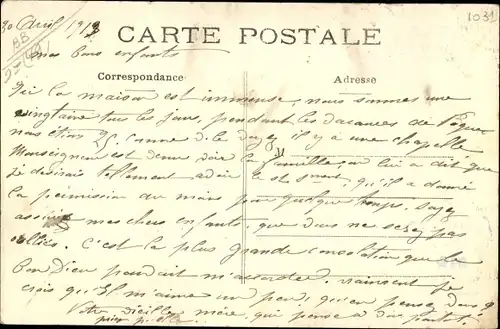 30 Avril 1913
1031
BB
CARTE POSTALE
mes bons enfants
Correspondance
Adresse
Ici la maison est immense, nous sommes une
vingtaine tous les jours, pendant les vacances de Pâques
nous étions 25. il y a une chapelle
Monseigneur est venu voir la famille, on lui a dit que
je désirais tellement avoir le St qu'il a donné
la permission du moins pour quelque temps. Soyez
assurés mes chers enfants, que vous ne serez pas
oubliés. C'est la plus grande consolation que le
bon Dieu pouvait m'accorder, vraiment je
crois qu'Il m'aime un peu, qu'en pensez vous
Votre vieille mère, qui pense à vous